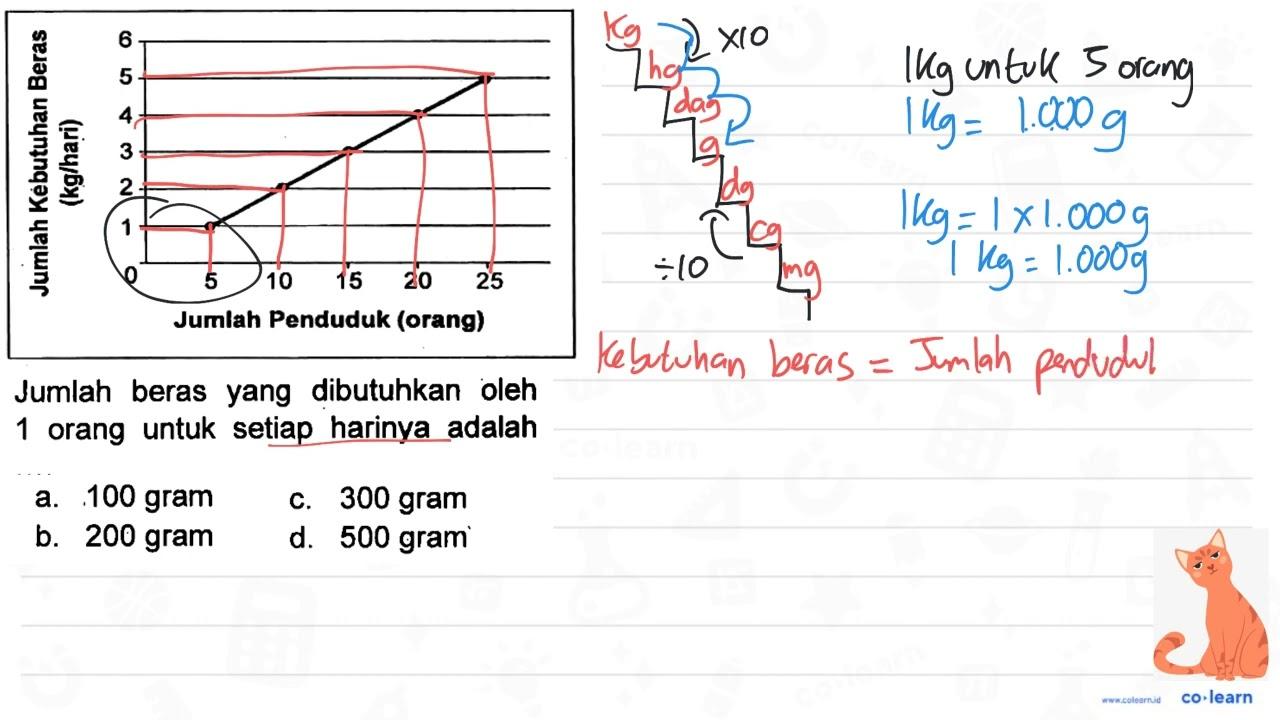 Jumlah Kebutuhan Beras
(kg/hari)
6
5
4
3
2
1
0
5 10 15 20 25
Jumlah Penduduk (orang)
Jumlah beras yang dibutuhkan oleh
1 orang untuk setiap harinya adalah
....
a. 100 gram c. 300 gram
b. 200 gram d. 500 gram
kg
hg
dag
g
dg
cg
mg
x10
÷10
1kg untuk 5 orang
1kg = 1.000 g
1kg = 1 x 1.000g
1 kg = 1.000g
Kebutuhan beras = Jumlah penduduk
co·learn
www.colearn.id co·learn